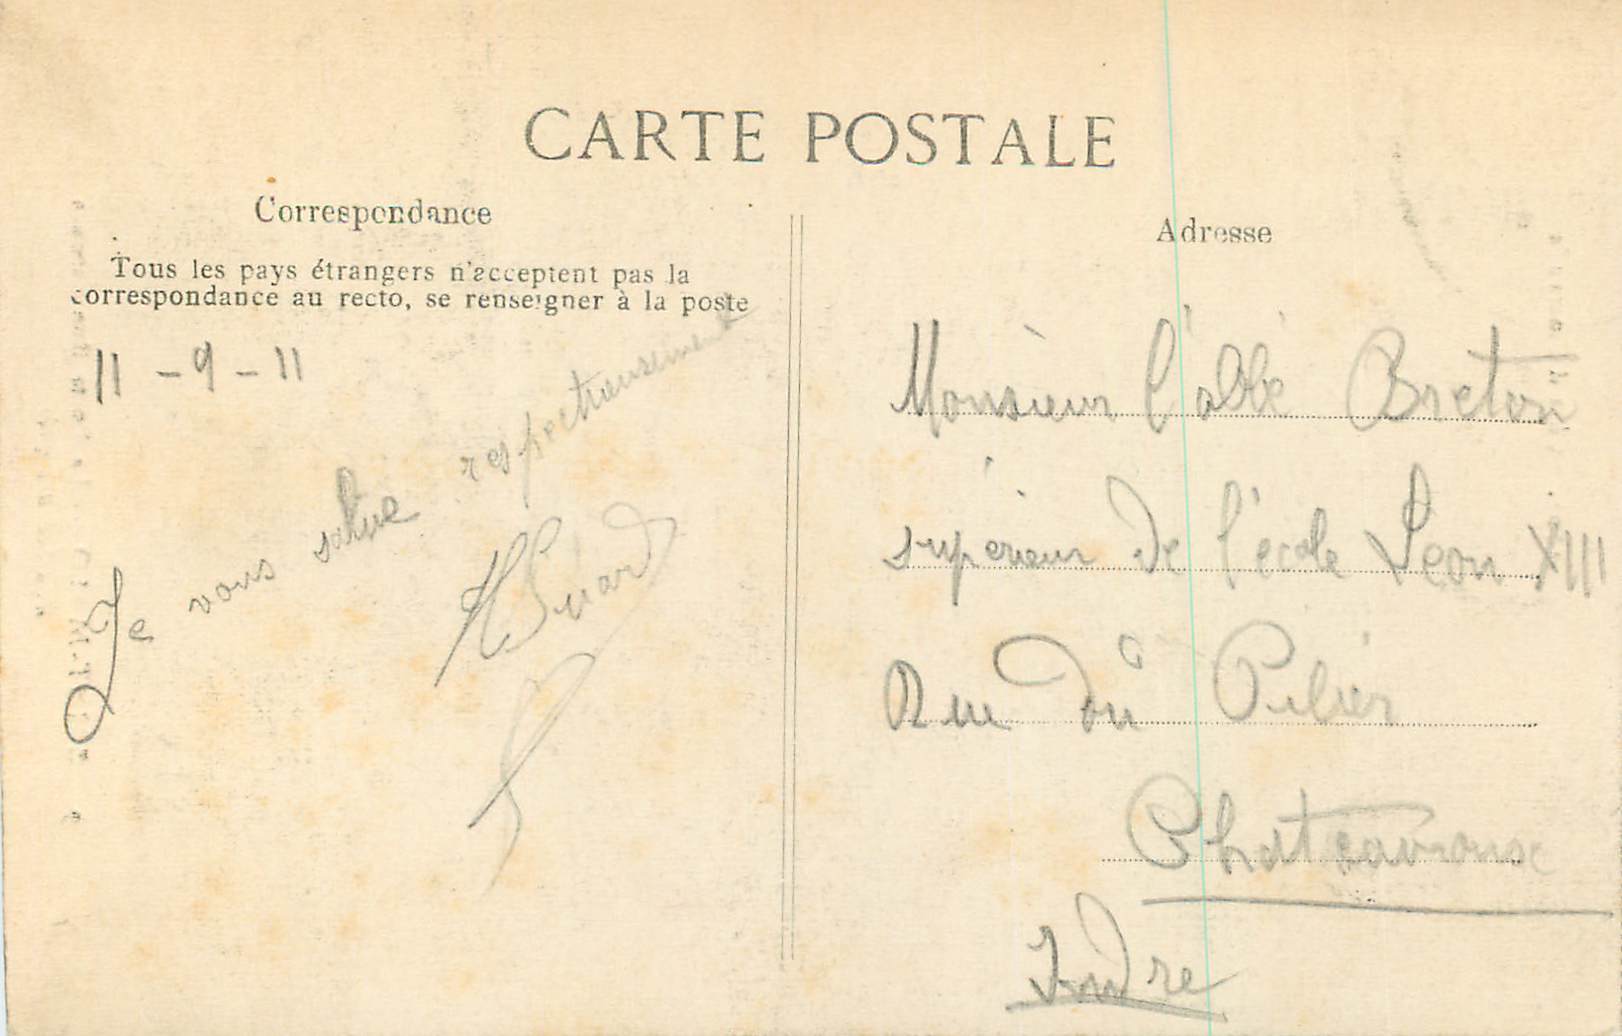 CARTE POSTALE
Correspondance
Tous les pays étrangers n'acceptent pas la
correspondance au recto, se renseigner à la poste
11 - 9 - 11
Je vous salue respectueusement
Adresse
Monsieur l'abbé Breton
supérieur de l'école Léon XIII
Rue du Pilier
Chateauroux
Indre